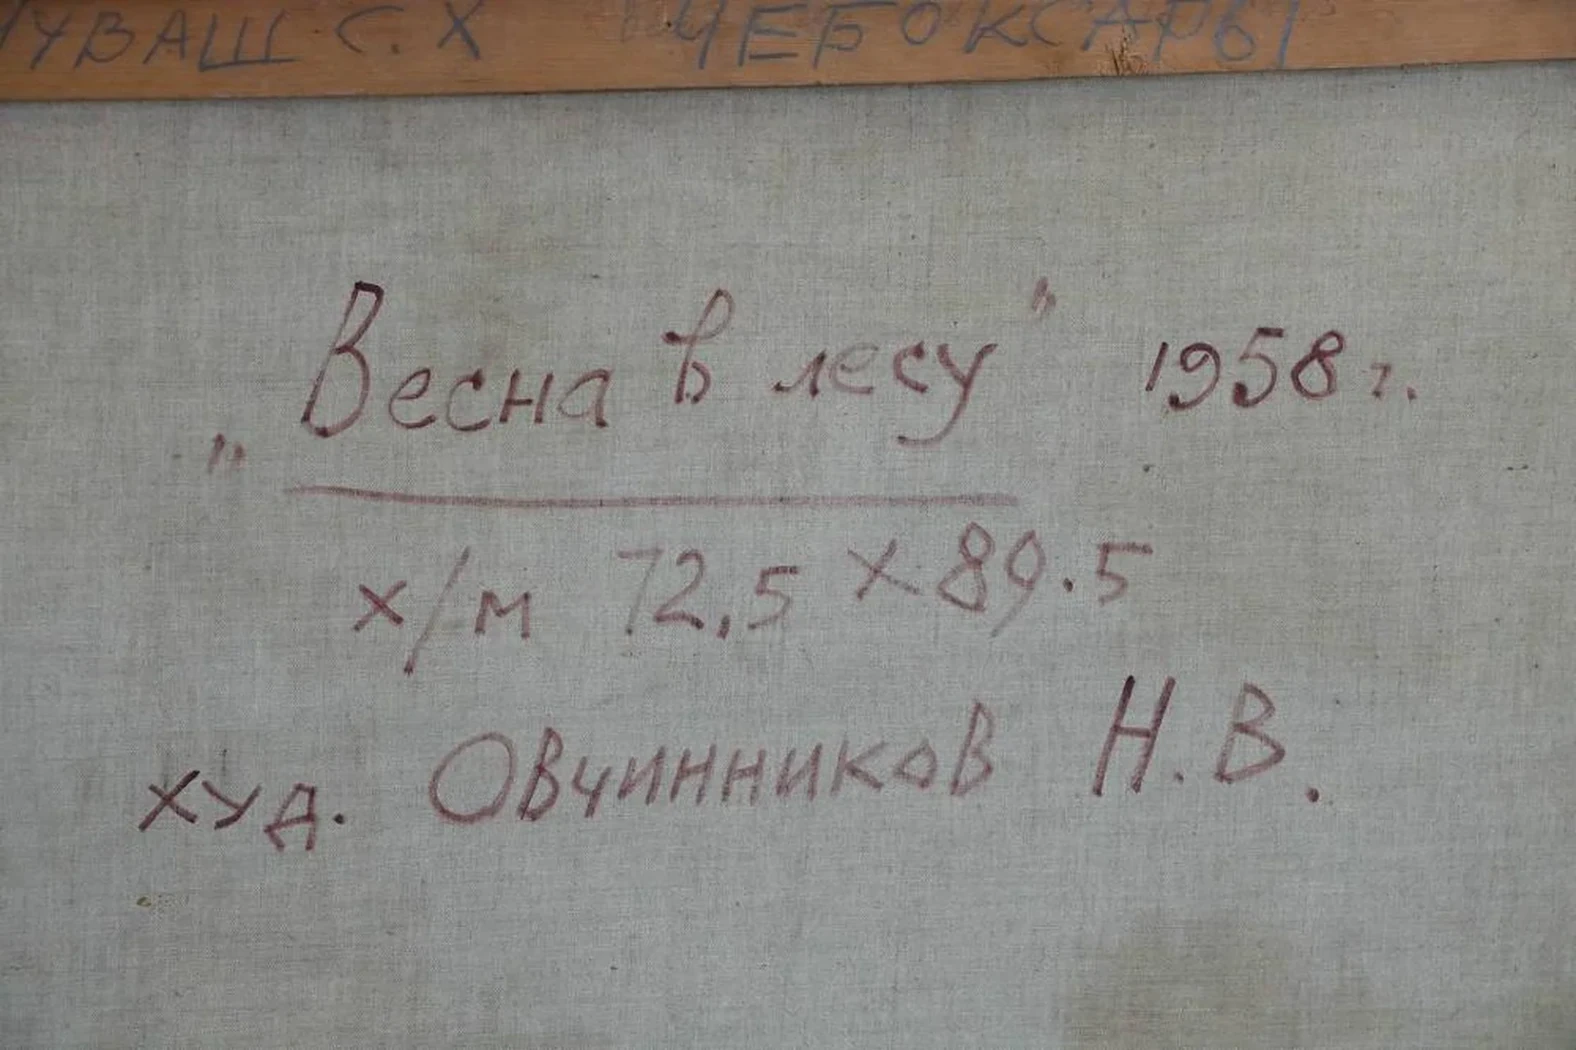 ЧУВАШ С.Х ЧЕБОКСАРЫ
„Весна в лесу" 1958 г.
х/м 72,5 х 89.5
худ. Овчинников Н.В.